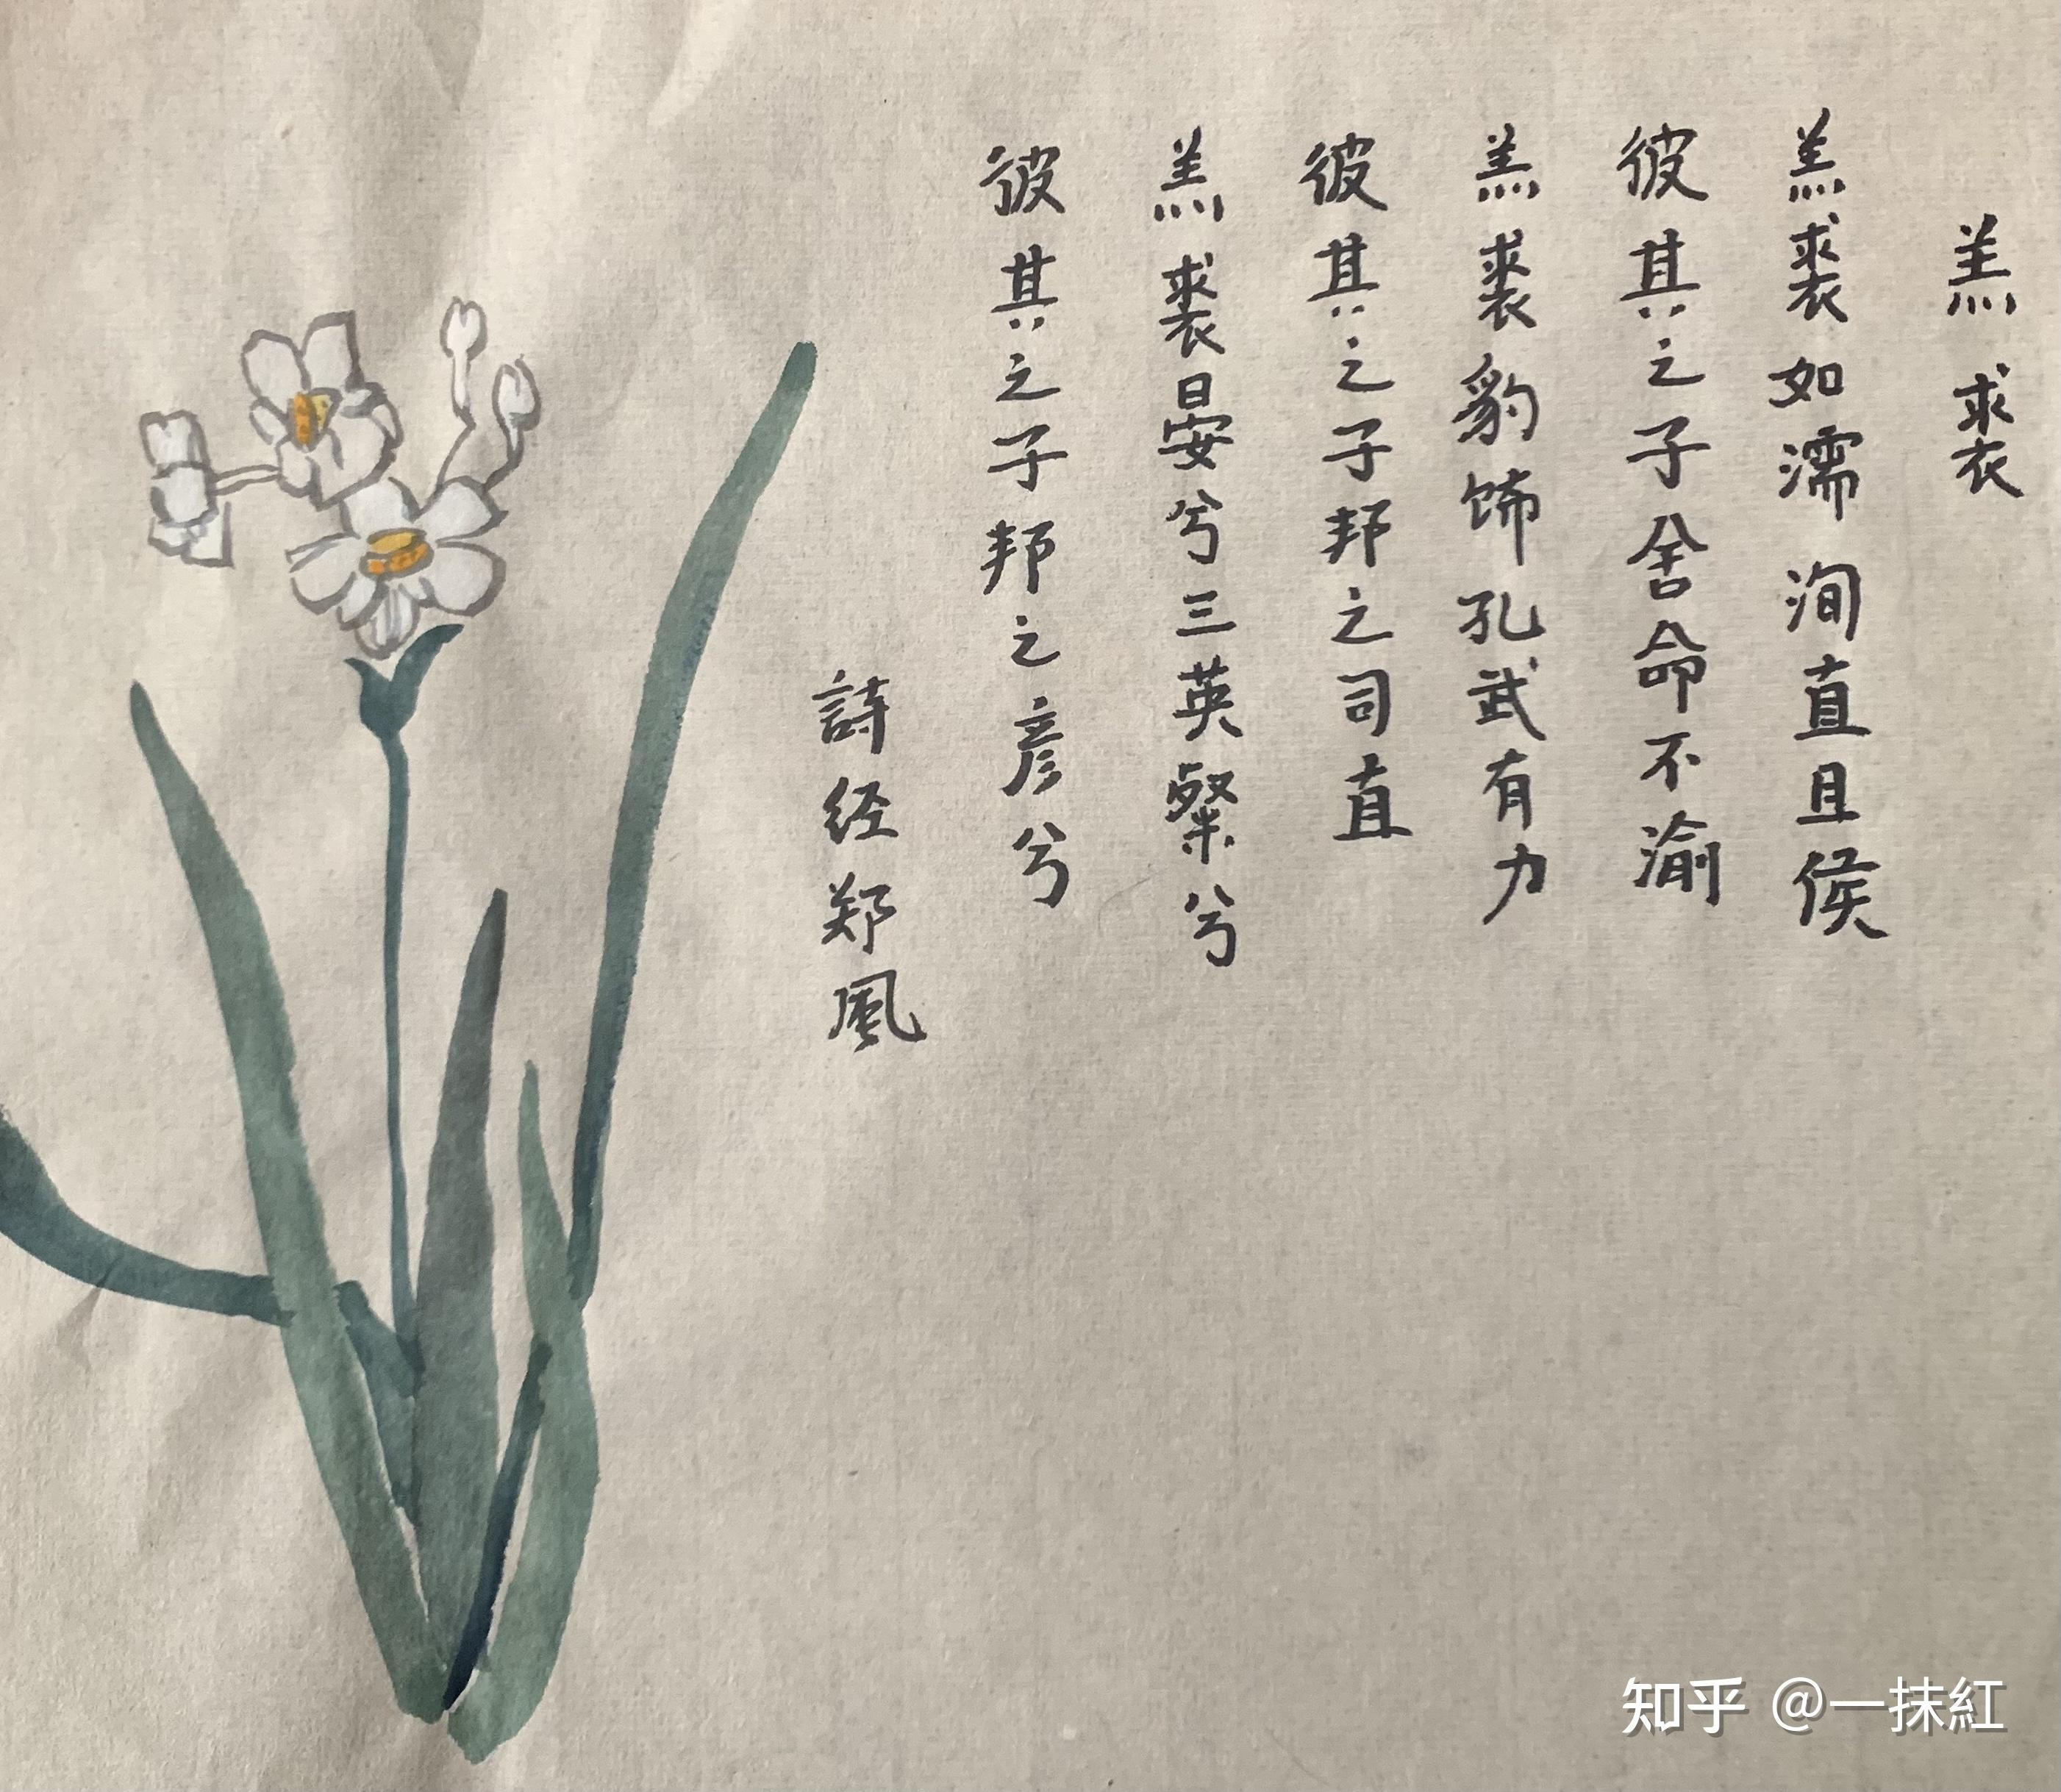 羔裘
羔裘如濡洵直且侯
彼其之子舍命不渝
羔裘豹饰孔武有力
彼其之子邦之司直
羔裘晏兮三英粲兮
彼其之子邦之彦兮
詩经郑風
知乎 @一抹紅